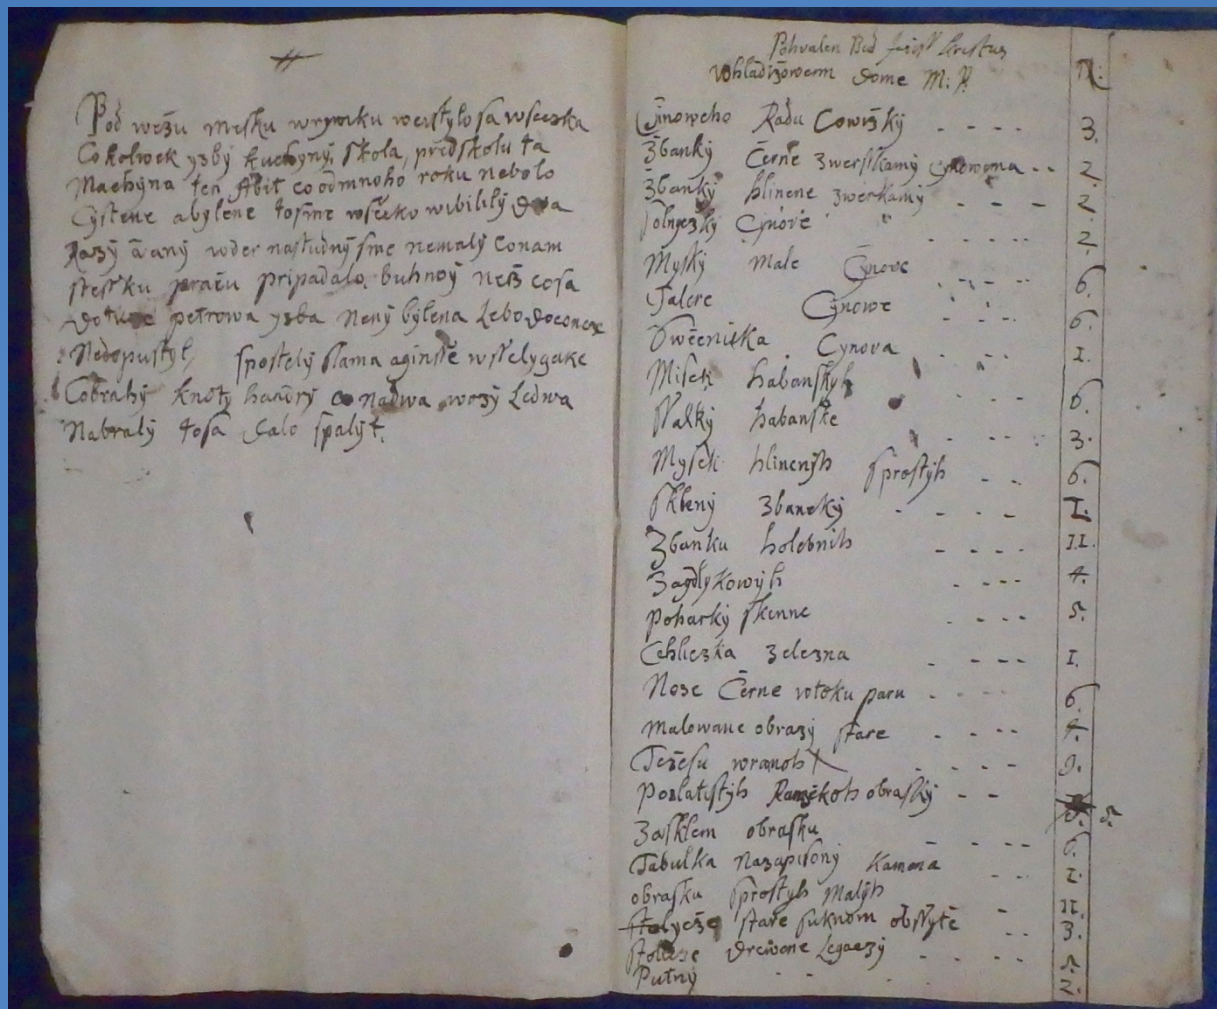 Pod wežu mesku wrynku weistylo sa wsecka
Cokolwek ysby kuchyny, skola, predskolu ta
Machyna ten Abit co odmnoho roku nebolo
Cystene abylene tosme wsecko wibilily dwa
Razy a any woder nastudny sme nemaly Conam
tessku pracu pripadalo. buhnoy nesz cosa
petrowa ysba neny bylena Lebo
Nedopustyl, spostely slama aginsse wsselygake
Cobrahy knoty handry co nadwa wozy Ledwa
Nabraly tosa Dalo spalyt.
Pohvalen Bud Jeziss Cristus
dome M: P. N:
Cinoweho Radu Cowizky - - - - 3.
Zbanky Černe zwerskamy cynowyma - - 2.
Zbanky hlinene zwerkamy - - - 2.
Solnyczky Cynove " - - - - 2.
Mysky male Cynove - - - - 6.
Talere Cynowe - - - 6.
Swecnitka Cynova - - - 1.
Misek habanskyh - - - 6.
Ssalky habanske - - - 3.
Mysek hlinenyh sprostyh - - 6.
Skleny zbanecky - - - - I.
Zbanku holebnih - - - - II.
Zaydlykowyh - - - - 4.
poharky sklenne - - - - 5.
Cehliczka zelezna - - - - I.
Noze Černe wtoku paru - - - - 6.
malowane obrazy stare - - - - 4.
wramoh - - - - 9.
pozlatistyh Ramčkoh obrasky - - 5.
Zasklem obrasku - - - - 6.
Tabulka nazapisony kamena - - I.
obrasku sprostyh malyh - II.
stare suknom obssyte - - 3.
drewene Legaczy - - - - -
Putny - - - 2.